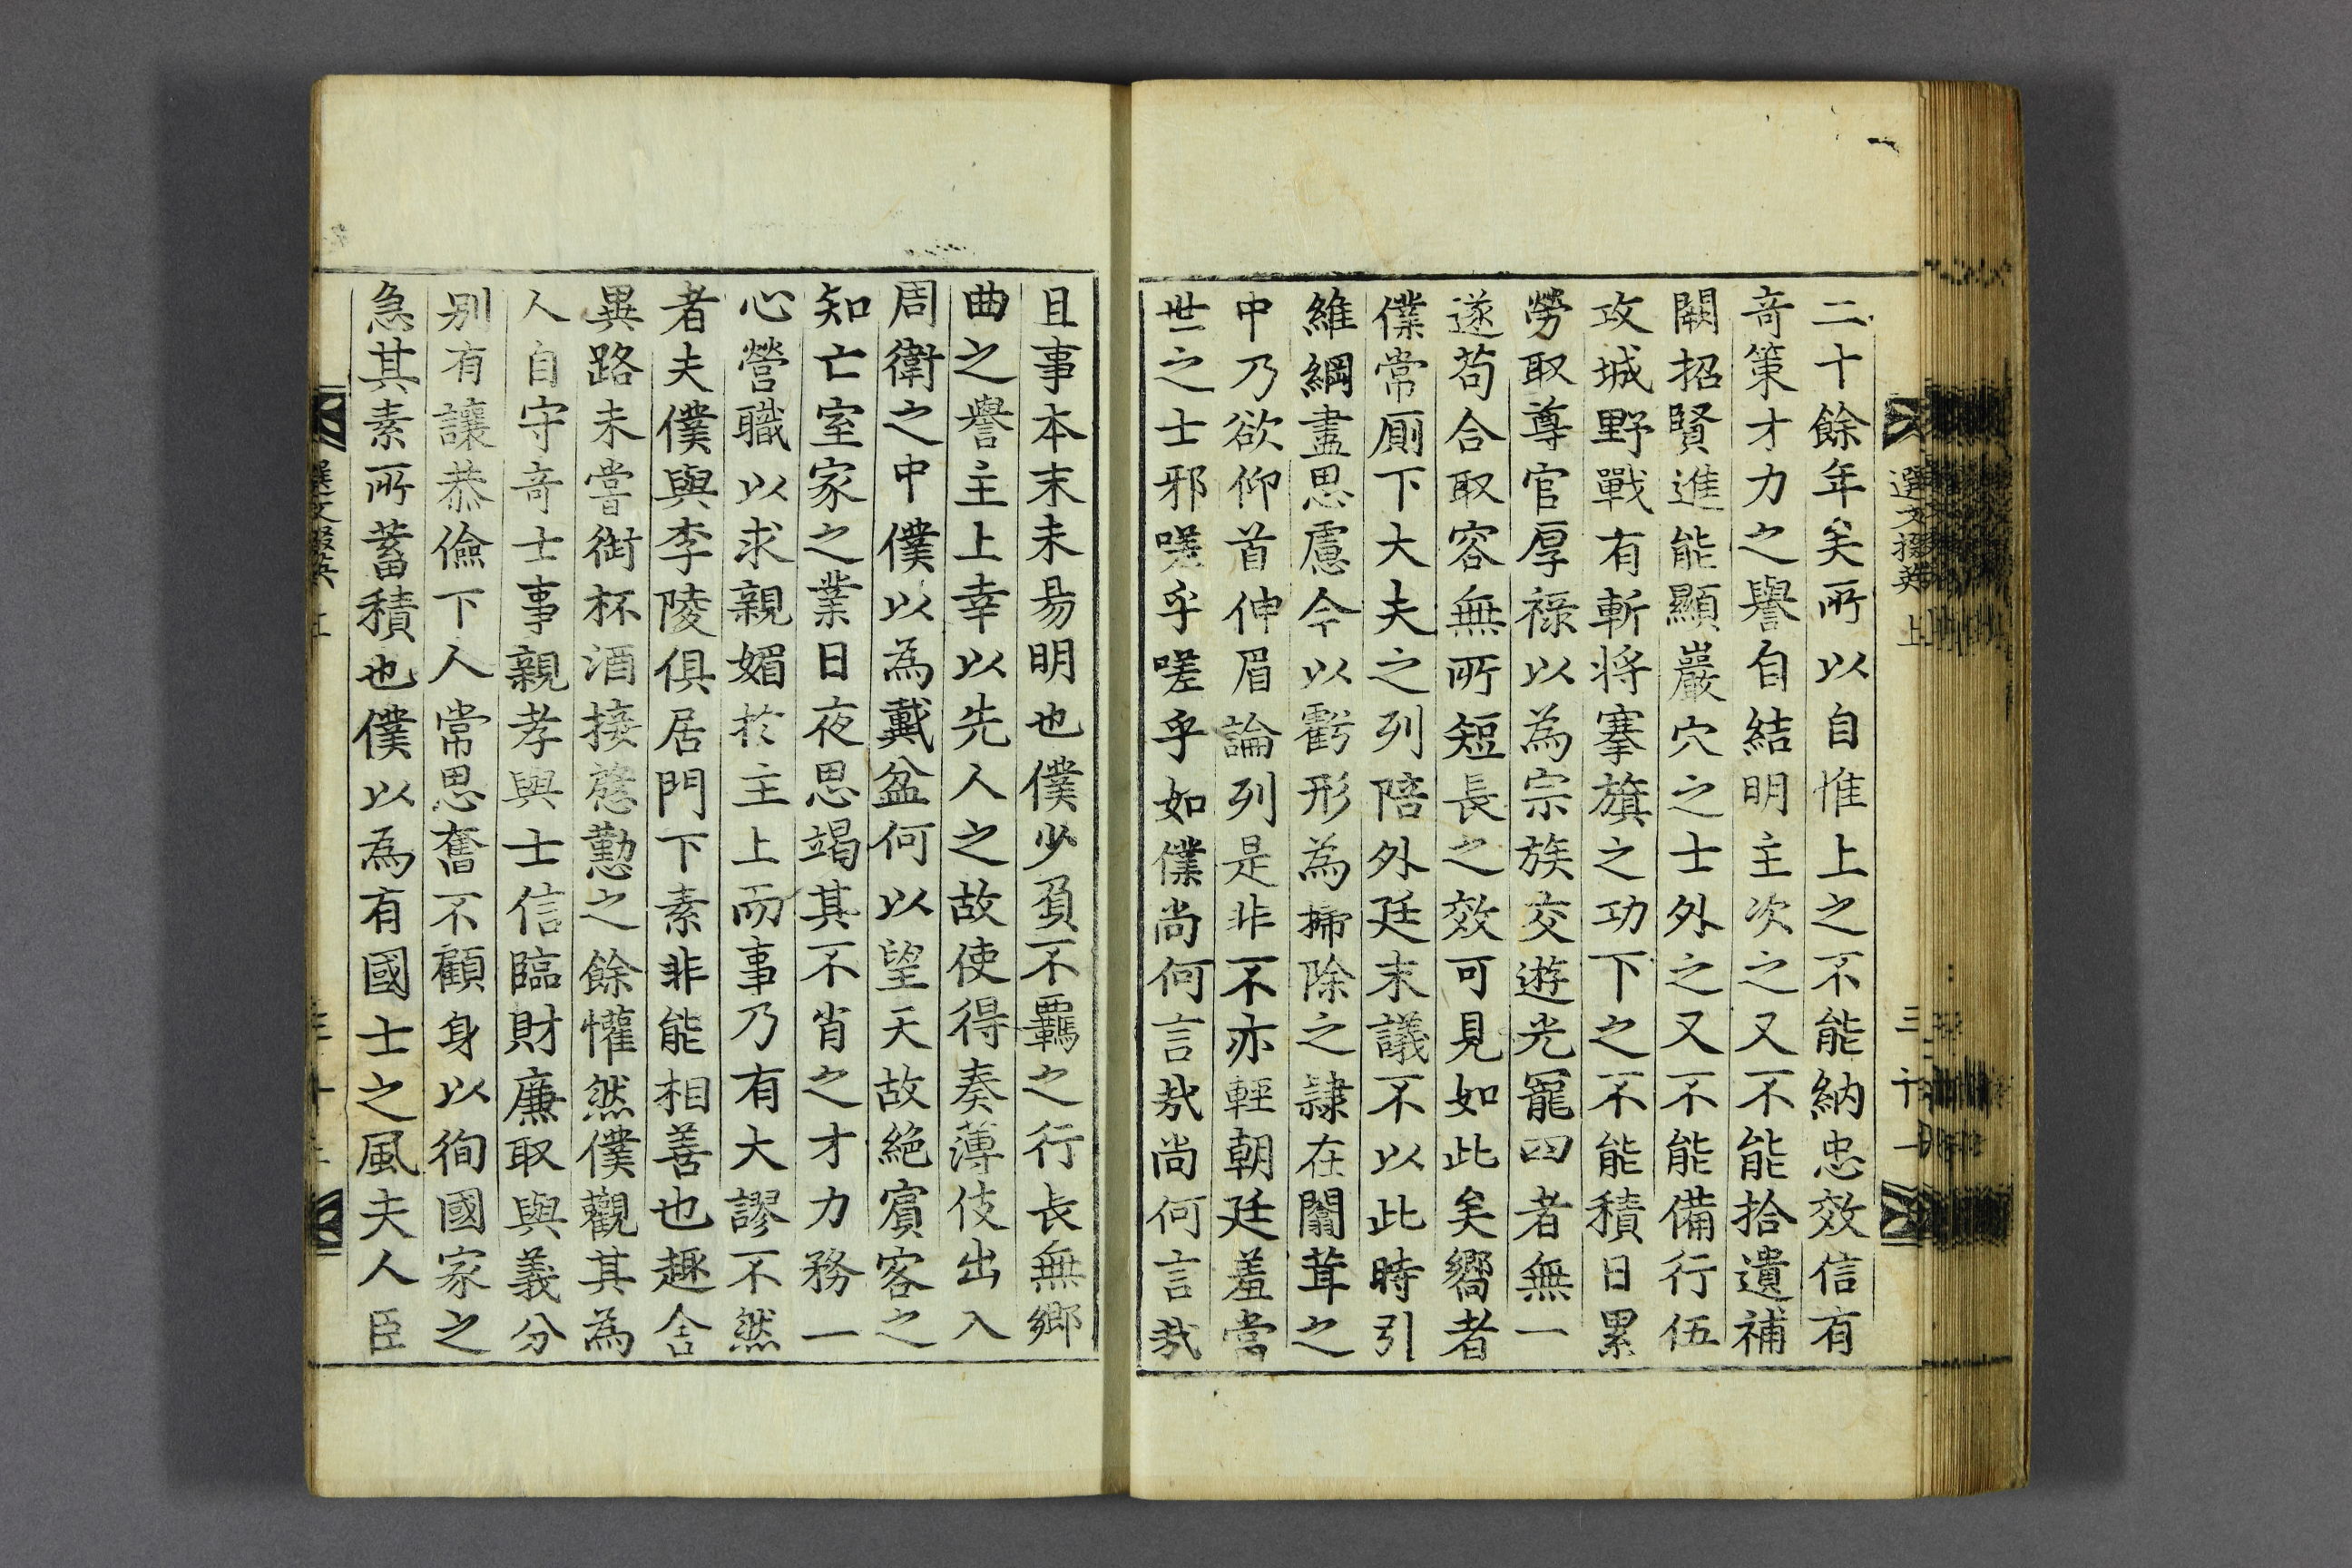 選文掇英 上
三十一
二十餘年矣所以自惟上之不能納忠效信有
竒策才力之譽自結明主次之又不能拾遺補
闕招賢進能顯巖穴之士外之又不能備行伍
攻城野戰有斬将搴旗之功下之不能積日累
勞取尊官厚祿以為宗族交遊光寵四者無一
遂苟合取容無所短長之效可見如此矣嚮者
僕常厠下大夫之列陪外廷末議不以此時引
維綱盡思慮今以虧形為掃除之隷在闒茸之
中乃欲仰首伸眉論列是非不亦輕朝廷羞當
世之士邪嗟乎嗟乎如僕尚何言㢤尚何言㢤
且事本末未易明也僕少負不羈之行長無鄉
曲之譽主上幸以先人之故使得奏薄伎出入
周衛之中僕以為戴盆何以望天故絕賔客之
知亡室家之業日夜思竭其不肖之才力務一
心營職以求親媚於主上而事乃有大謬不然
者夫僕與李陵俱居門下素非能相善也趣舍
異路未嘗銜杯酒接慇懃之餘懽然僕觀其為
人自守竒士事親孝與士信臨財廉取與義分
别有讓恭儉下人常思奮不顧身以徇國家之
急其素所蓄積也僕以為有國士之風夫人臣